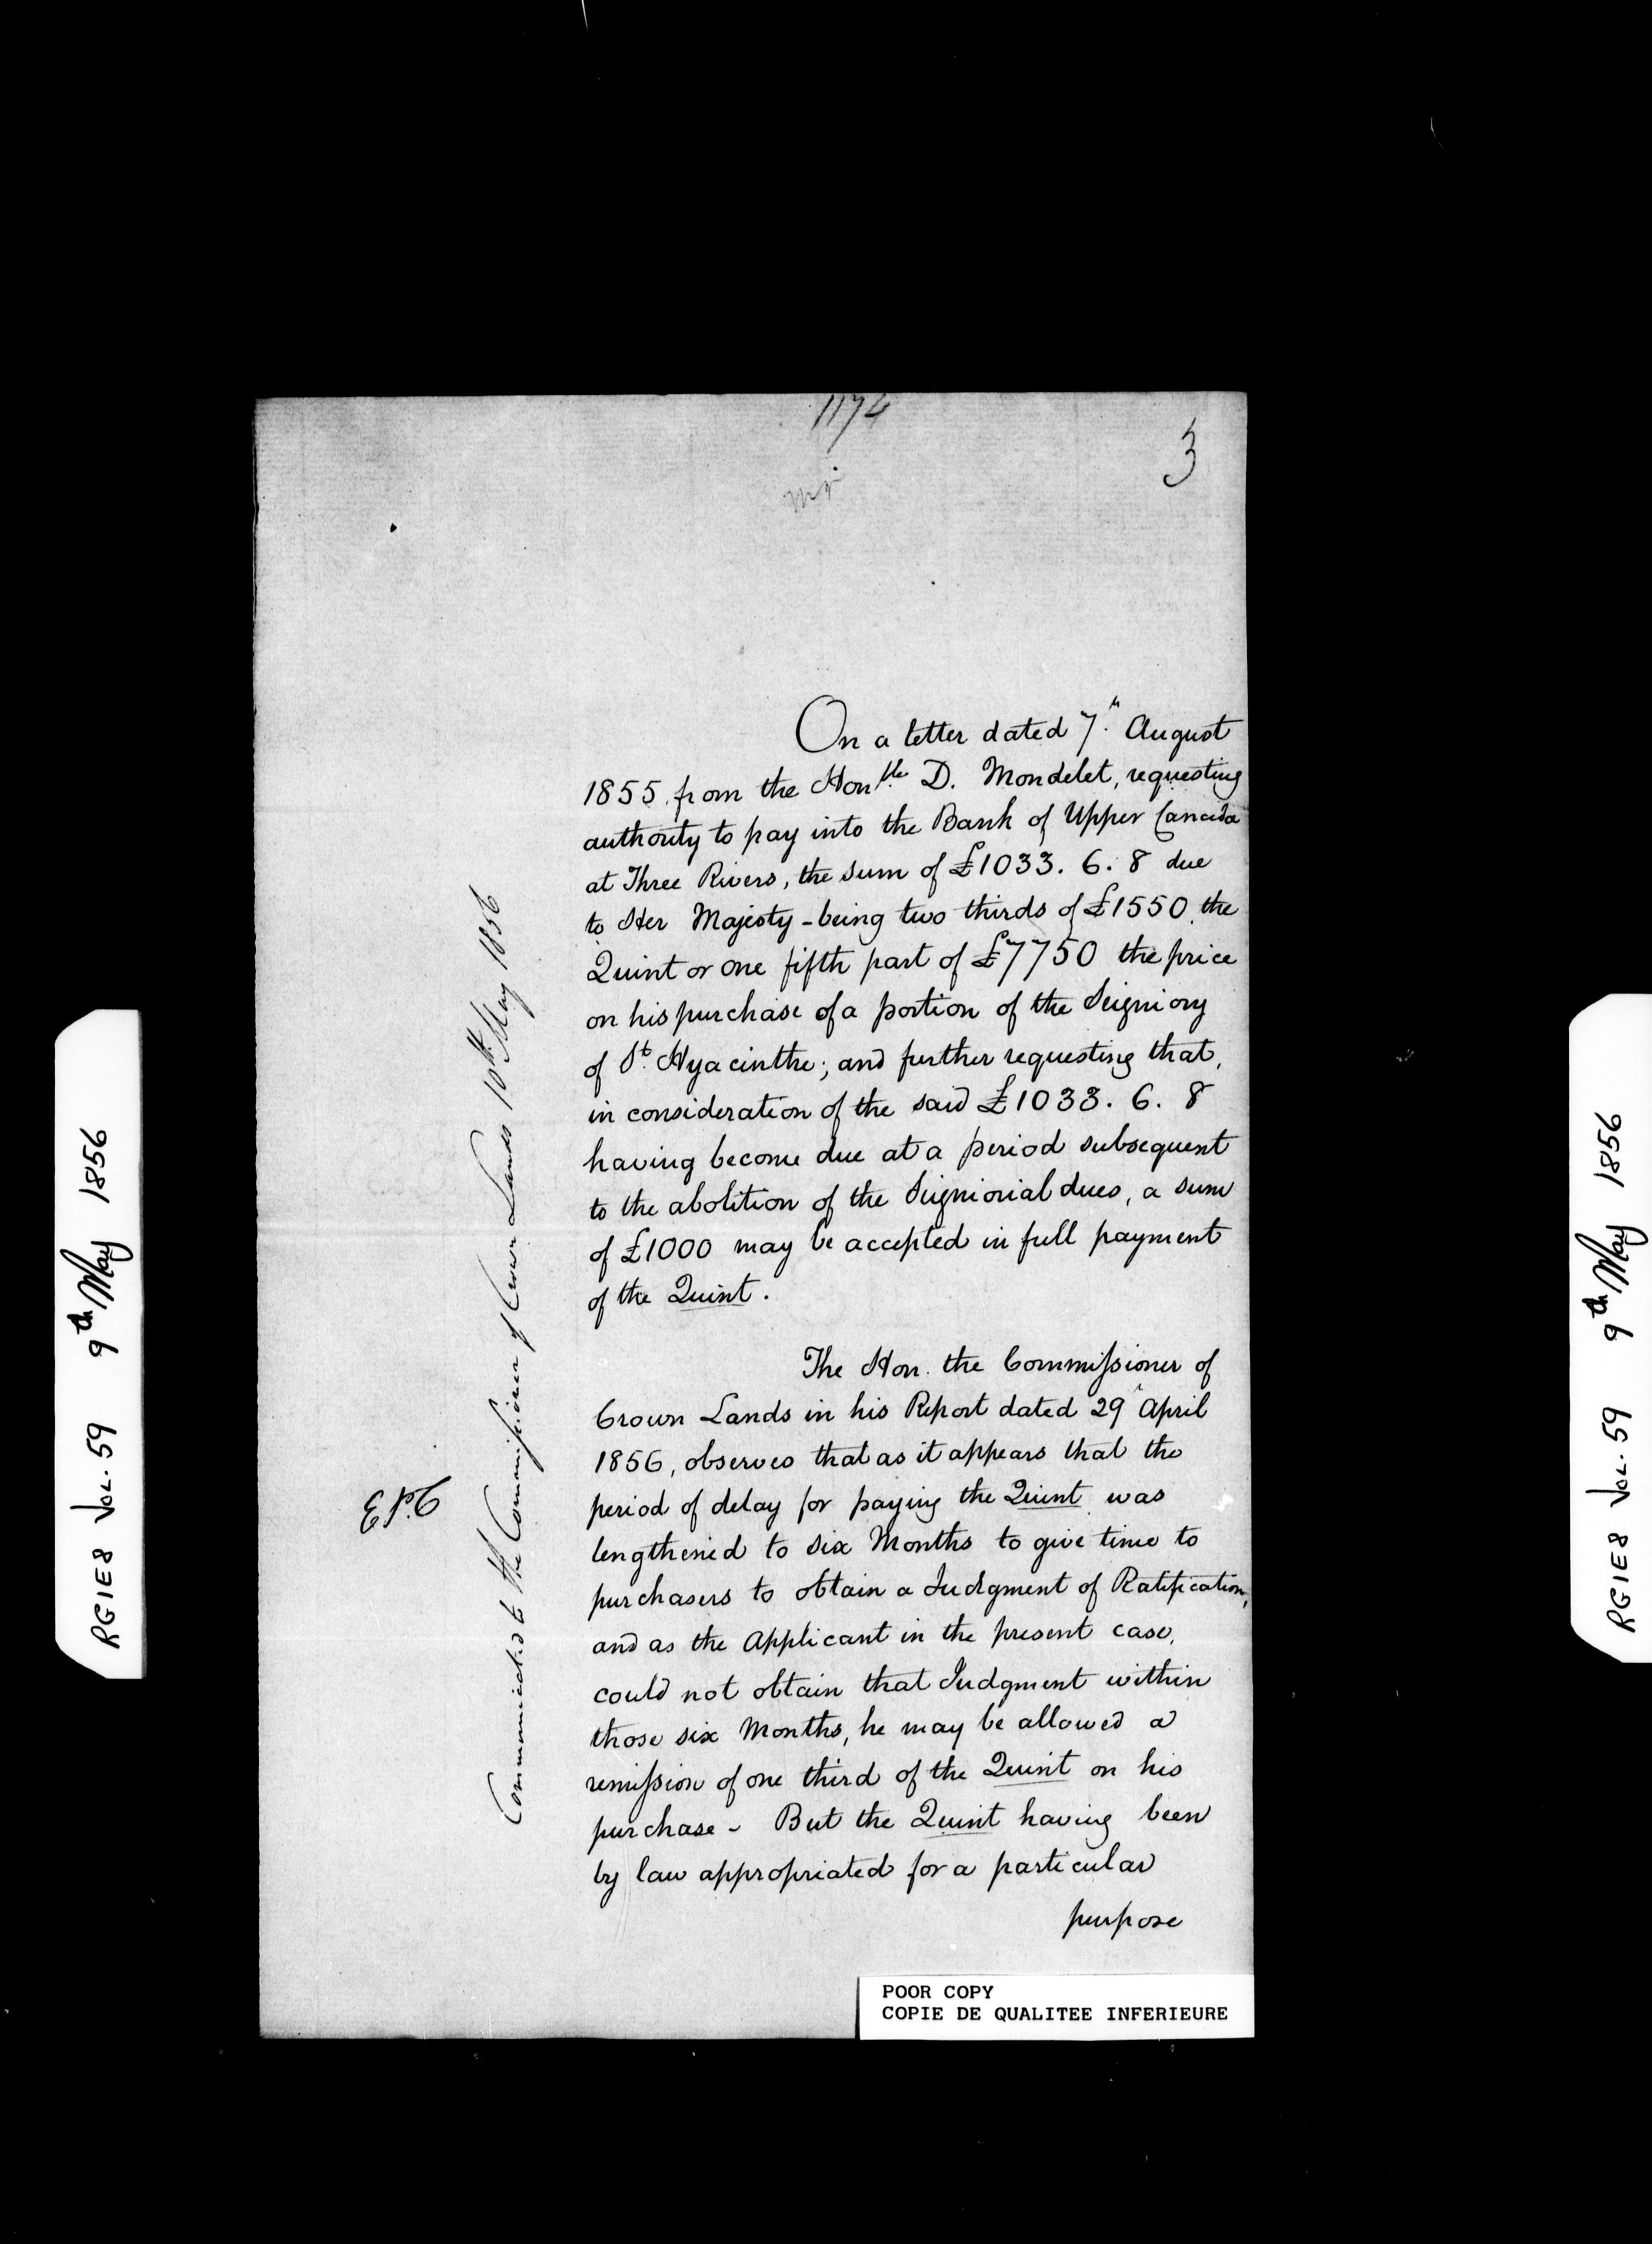 1174
3
On a letter dated 7th August
1855, from the Honble D. Mondelet, requesting
authority to pay into the Bank of Upper Canada
at Three Rivers, the sum of £1033. 6. 8 due
to Her Majesty - being two thirds of £1550. the
Quint or one fifth part of £7750 the price
on his purchase of a portion of the Seigniory
of St. Hyacinthe; and further requesting that,
in consideration of the said £1033. 6. 8
having become due at a period subsequent
to the abolition of the Seigniorial dues, a sum
of £1000 may be accepted in full payment
of the Quint.
The Hon. the Commissioner of
Crown Lands in his Report dated 29th April
1856, observes that as it appears that the
period of delay for paying the Quint was
lengthened to six Months to give time to
purchasers to obtain a Judgment of Ratification,
and as the Applicant in the present case,
could not obtain that Judgment within
those six Months, he may be allowed a
remission of one third of the Quint on his
purchase - But the Quint having been
by law appropriated for a particular
purpose
Communicated to the Commissioner of Crown Lands 10th May 1856
E.P.C
POOR COPY
COPIE DE QUALITEE INFERIEURE
RG1E8 VOL. 59 9th May 1856
RG1E8 VOL. 59 9th May 1856